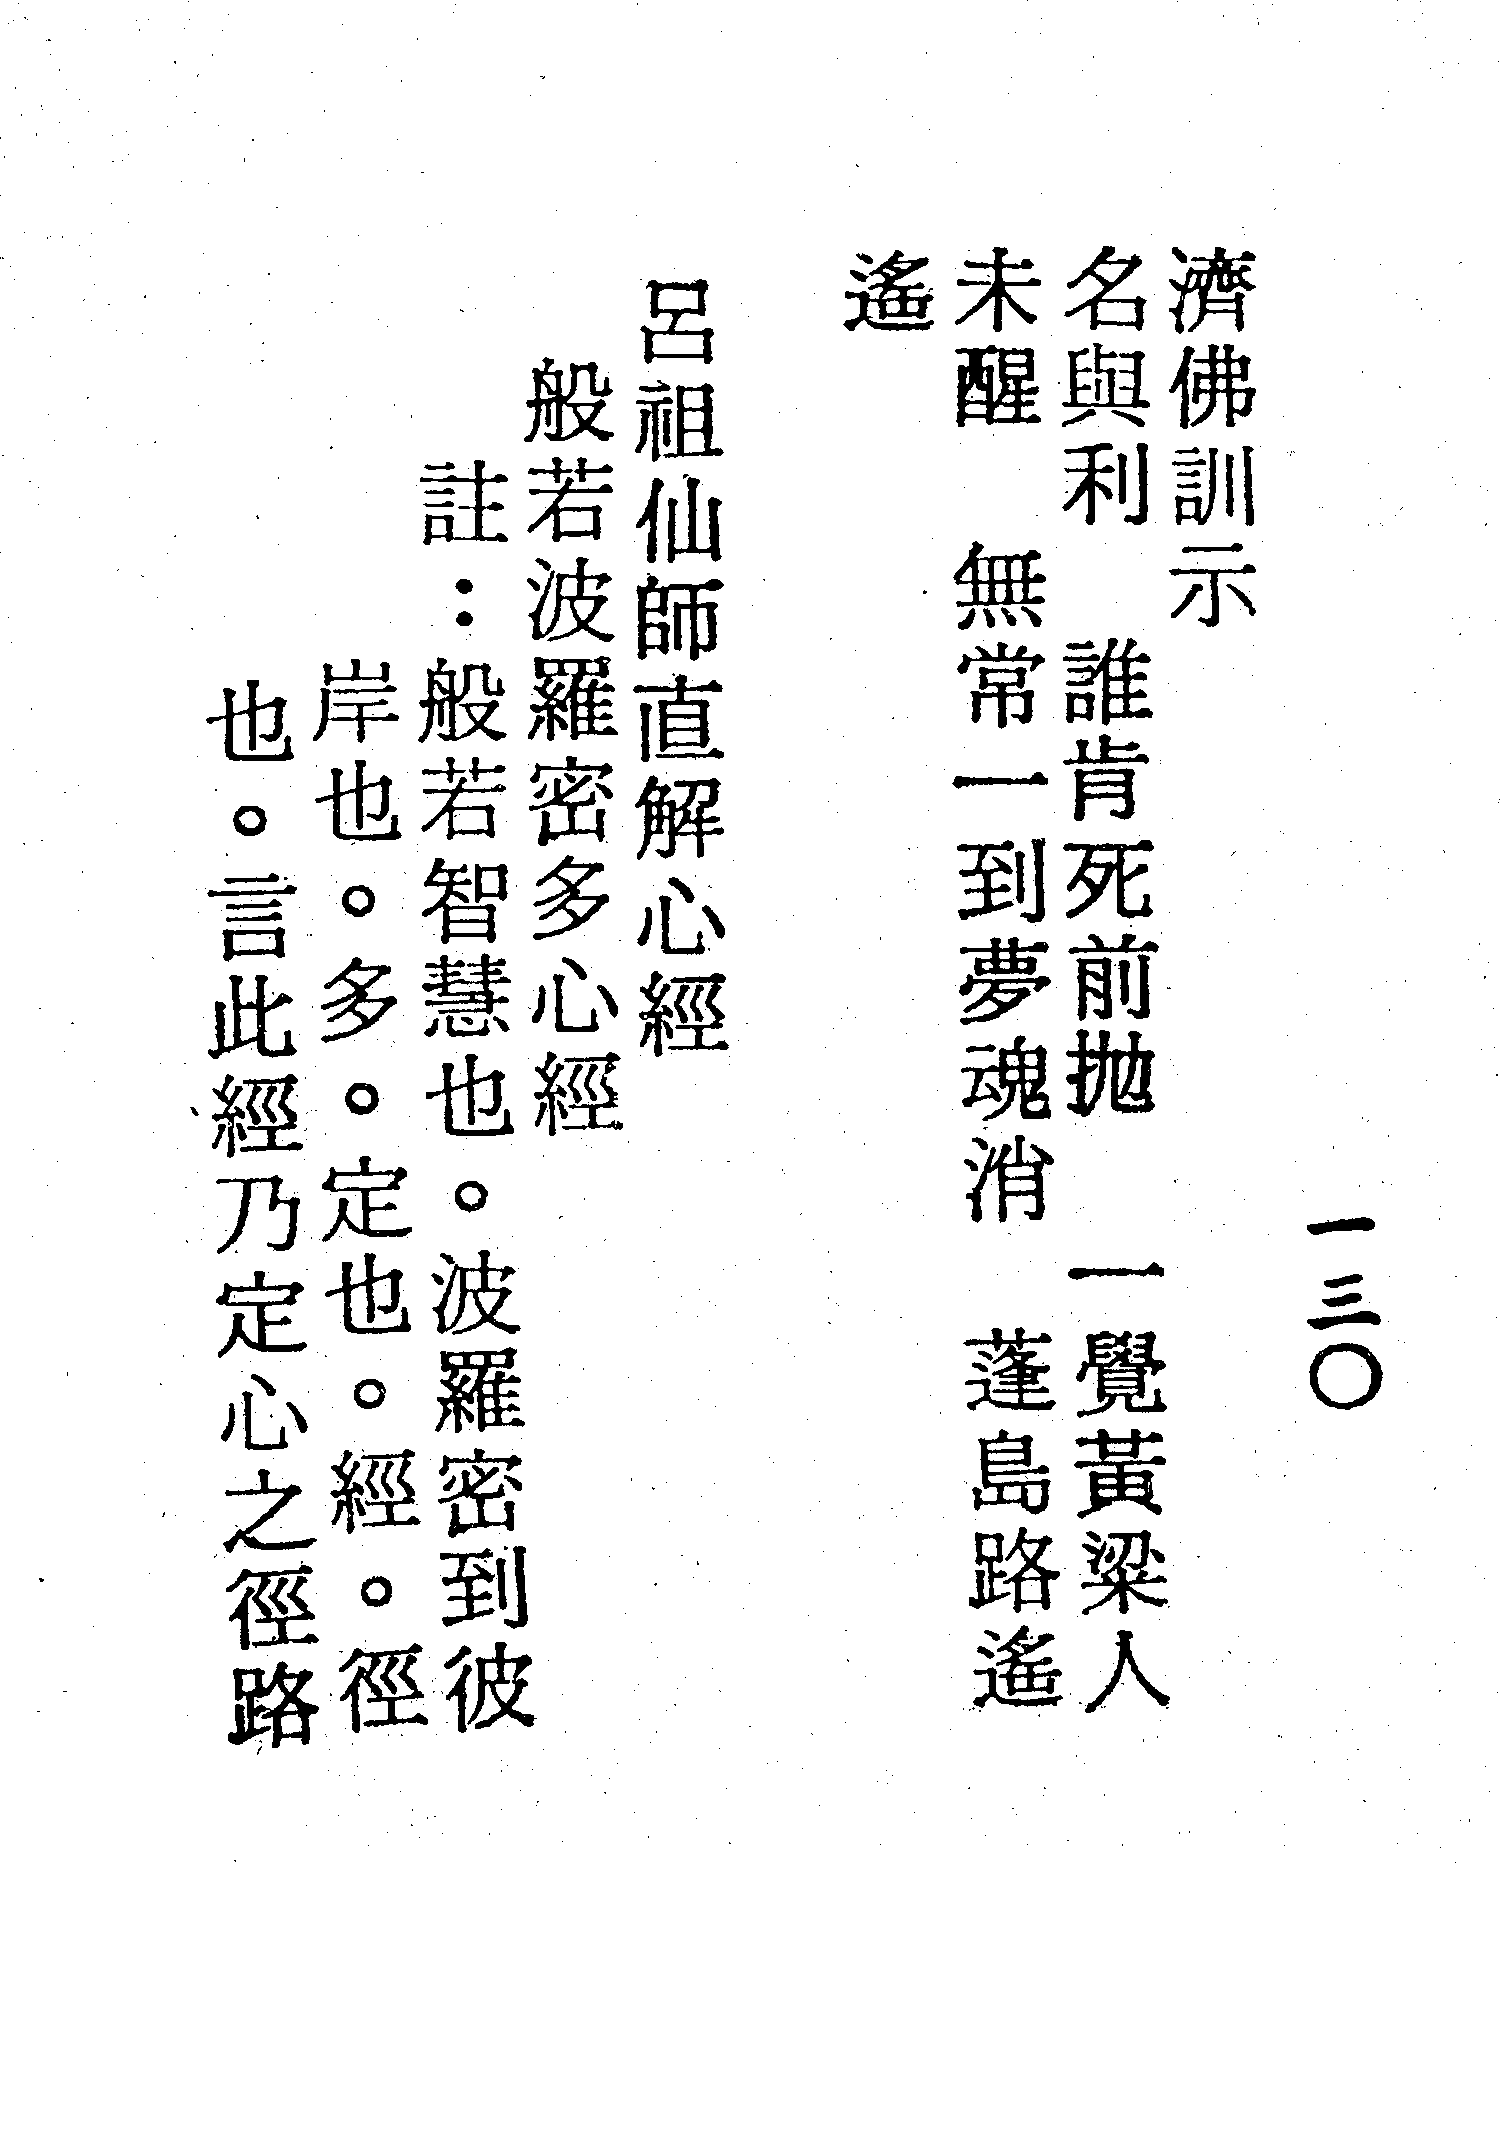 一三〇
濟佛訓示
名與利　誰肯死前拋　一覺黃粱人
未醒　無常一到夢魂消　蓬島路遙
遙
呂祖仙師直解心經
般若波羅密多心經
註：般若智慧也。波羅密到彼
岸也。多。定也。經。徑
也。言此經乃定心之徑路